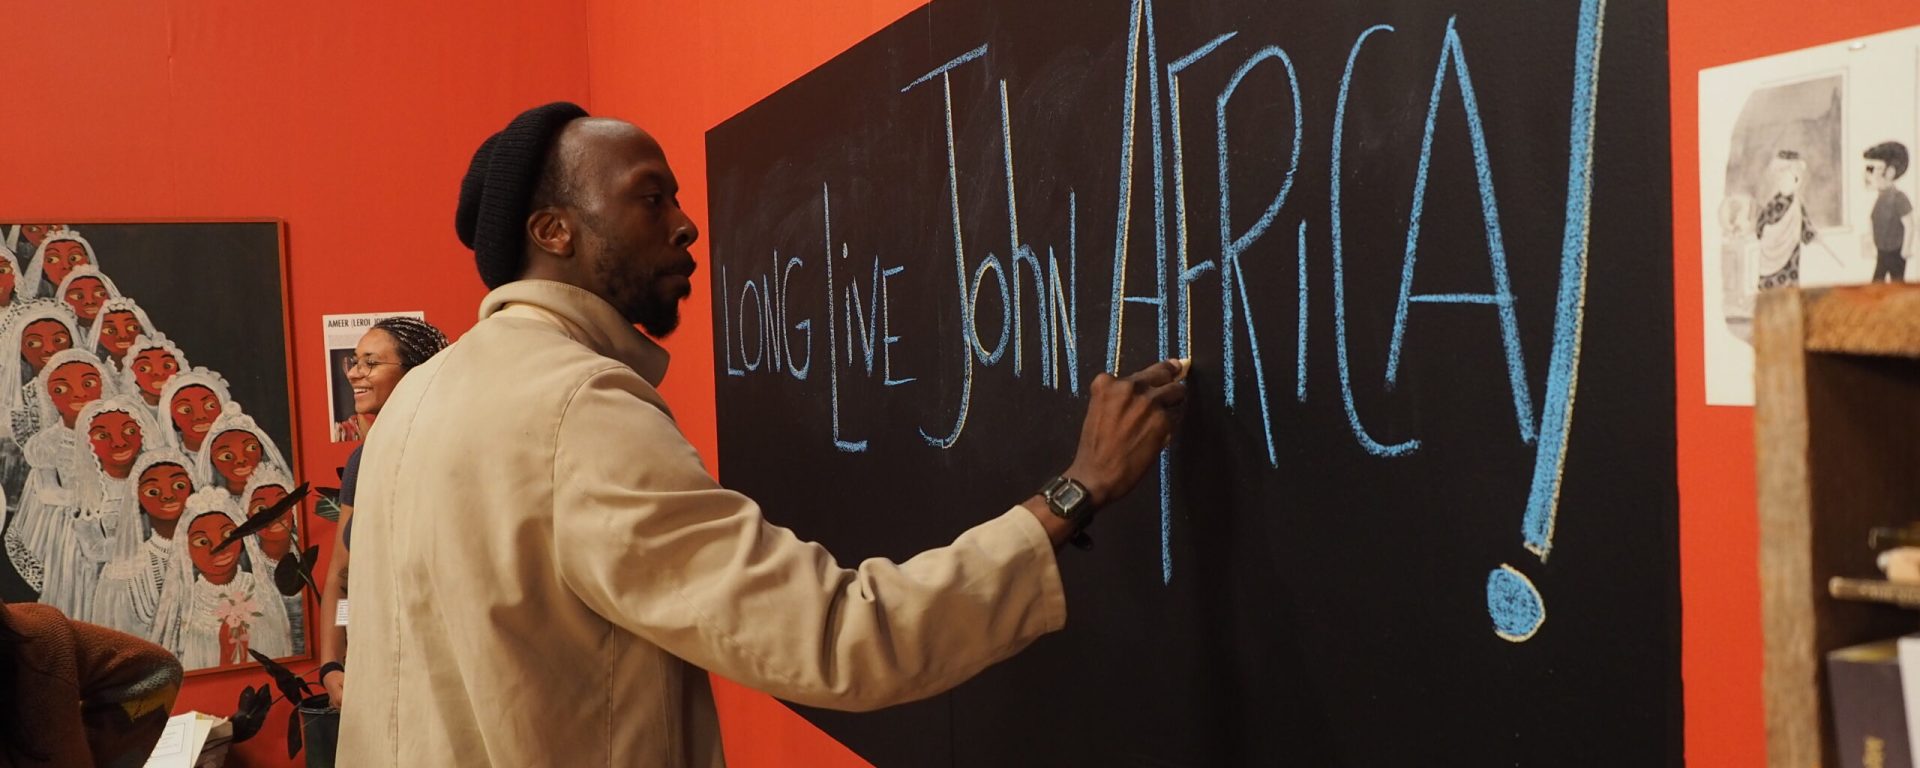 LONG LiVE JohN AFRiCA!
AMEER (LEROI